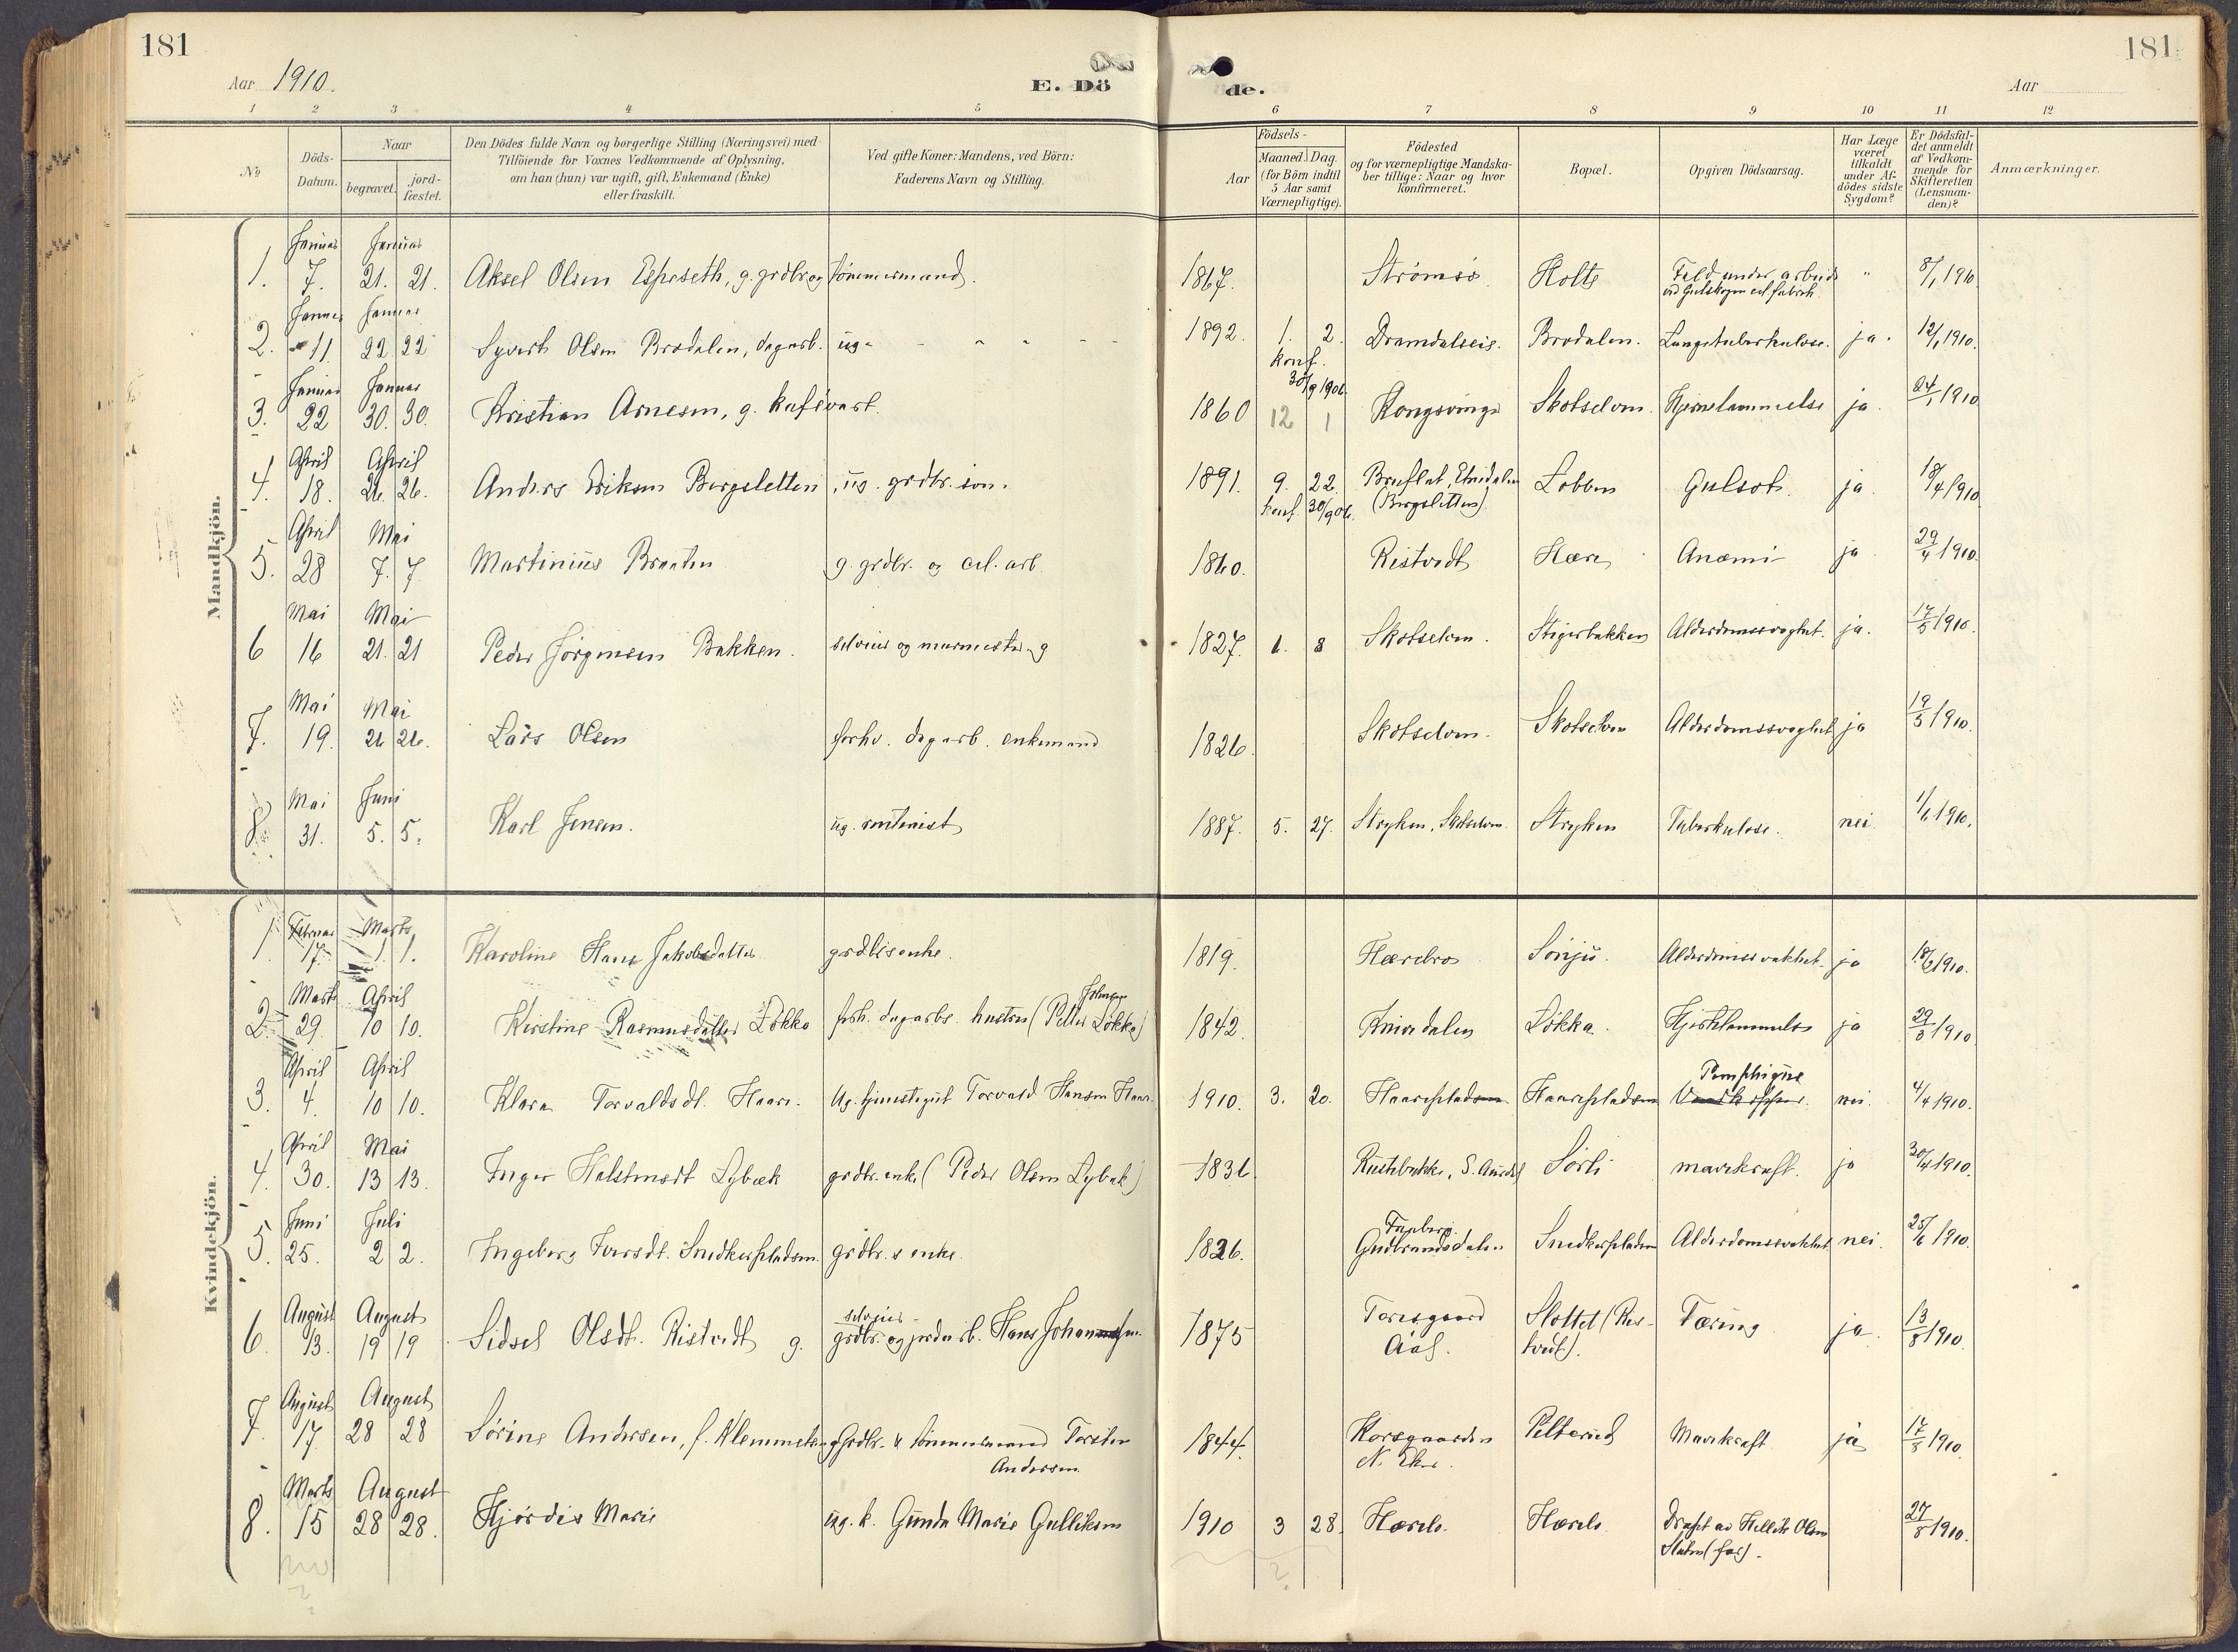 181
181
Aar 1910.
E. Dö
de.
Aar
1 2 3 4 5 6 7 8 9 10 11 12
No
Döds-Datum.
Naar
begravet.
jord-fæstet.
Den Dödes fulde Navn og borgerlige Stilling (Næringsvei) med
Tilföiende for Voxnes Vedkommende af Oplysning,
om han (hun) var ugift, gift, Enkemand (Enke)
eller fraskilt.
Ved gifte Koner: Mandens, ved Börn:
Faderens Navn og Stilling.
Födsels-
Aar
Maaned. Dag.
(for Börn indtil
5 Aar samt
Værnepligtige).
Födested
og for værnepligtige Mandska-
ber tillige: Naar og hvor
konfirmeret.
Bopæl.
Opgiven Dödsaarsag.
Har Læge
været
tilkaldt
under Af-
dödes sidste
Sygdom?
Er Dödsfal-
det anmeldt
af Vedkom-
mende for
Skifteretten
(Lensman-
den)?
Anmærkninger.
Mandkjön.
Januar Januar
1. 7. 21. 21. Aksel Olsen Espeseth, g. grdbr. og tömmermand. 1867. Strömsö Holte Fald under arbeide " 8/1 1910.
ved Gulskogen cel. fabrik.
Januar Januar
2. 11 22 22 Syvert Olsen Brodalen, dagarb. ug. 1892. 1. 2. Bromdalseie. Brodalen. Lungetuberkulose. ja. 12/1 1910.
konf. 30/9 1906.
Januar Januar
3. 22 30. 30. Kristian Arnesen, g. kafévært. 1860 12 1 Kongsvinger Skotselven. Hjernelammelse ja. 24/1 1910
April April
4. 18. 26. 26. Anders Eriksen Bergsletten, ug. grdbr. sön. 1891. 9. 22. Bruflat, Etnedalen Lobben Gulsot. ja. 18/4 1910
konf. 30/9 06. (Bergsletten)
April Mai
5. 28 7. 7 Martinius Braaten g. grdbr. og cel. arb. 1860. Ristvedt Hære Anæmi ja 29/4 1910.
Mai Mai
6 16 21. 21 Peder Jörgensen Bakken. selveier og murmester g 1827. 1. 8 Skotselven. Stigerbakken Alderdomssvaghet. ja. 17/5 1910.
Mai Mai
7. 19. 26 26. Lars Olsen forhv. dagarb. enkemand 1826. Skotselven. Skotselven Alderdomssvaghet ja 19/5 1910.
Mai Juni
8. 31. 5. 5. Karl Jensen. ug. maskinist 1887. 5. 27. Stryken, Skotselven. Stryken Tuberkulose. nei 1/6 1910.
Kvindekjön.
Februar Marts
1. 17. 1. 1. Karoline Hans Jakobsdatter grdbrs enke. 1819. Hærebro Sönju. Alderdomssvakhet. ja 18/2 1910.
Marts April
2. 29. 10 10. Kirstine Rasmusdatter Lökka forh. dagarbs. hustru (Petter Johnsen Lökka) 1842. Knivedalen Lökka. Hjertelammelse ja 29/3 1910.
April April
3. 4. 10 10. Klara Torvaldsdt. Haare. Ug. tjenestegut Torvald Hansen Haare. 1910. 3. 20. Haarepladsen Haarepladsen Pemphigus nei. 4/4 1910.
April Mai
4. 30. 13 13. Inger Halstensdt Lybæk grdbr. enke (Peder Olsen Lybæk) 1836 Rustebakke, S. Aurdal Sörli mavekræft. ja 30/4 1910.
Juni Juli
5. 25. 2 2. Ingeborg Iversdt. Snedkerpladsen. grdbr.s enke. 1826. Faaberg Gudbrandsdalen Snedkerpladsen Alderdomssvakhet nei. 25/6 1910.
August August
6. 13. 19 19 Sidsel Olsdt. Ristvedt g. selveier grdbr. og jordarb. Hans Johansen. 1875 Toresgaard Slottet (Ris- Tæring ja. 13/8 1910.
Aal. tvedt).
August August
7. 17 28 28 Sörine Andersen, f. Klemmetsen g. Grdbr. & tömmermand Torsten 1844. Korsgaarden Pelterud Mavekræft ja 17/8 1910.
Andersen. N. Eker.
Marts August
8. 15 28 28. Hjördis Marie ug. k. Gunda Marie Gulliksen 1910 3 28. Hærele. Hærele. Dræpt av Hellik Olsen 27/8 1910.
(far).